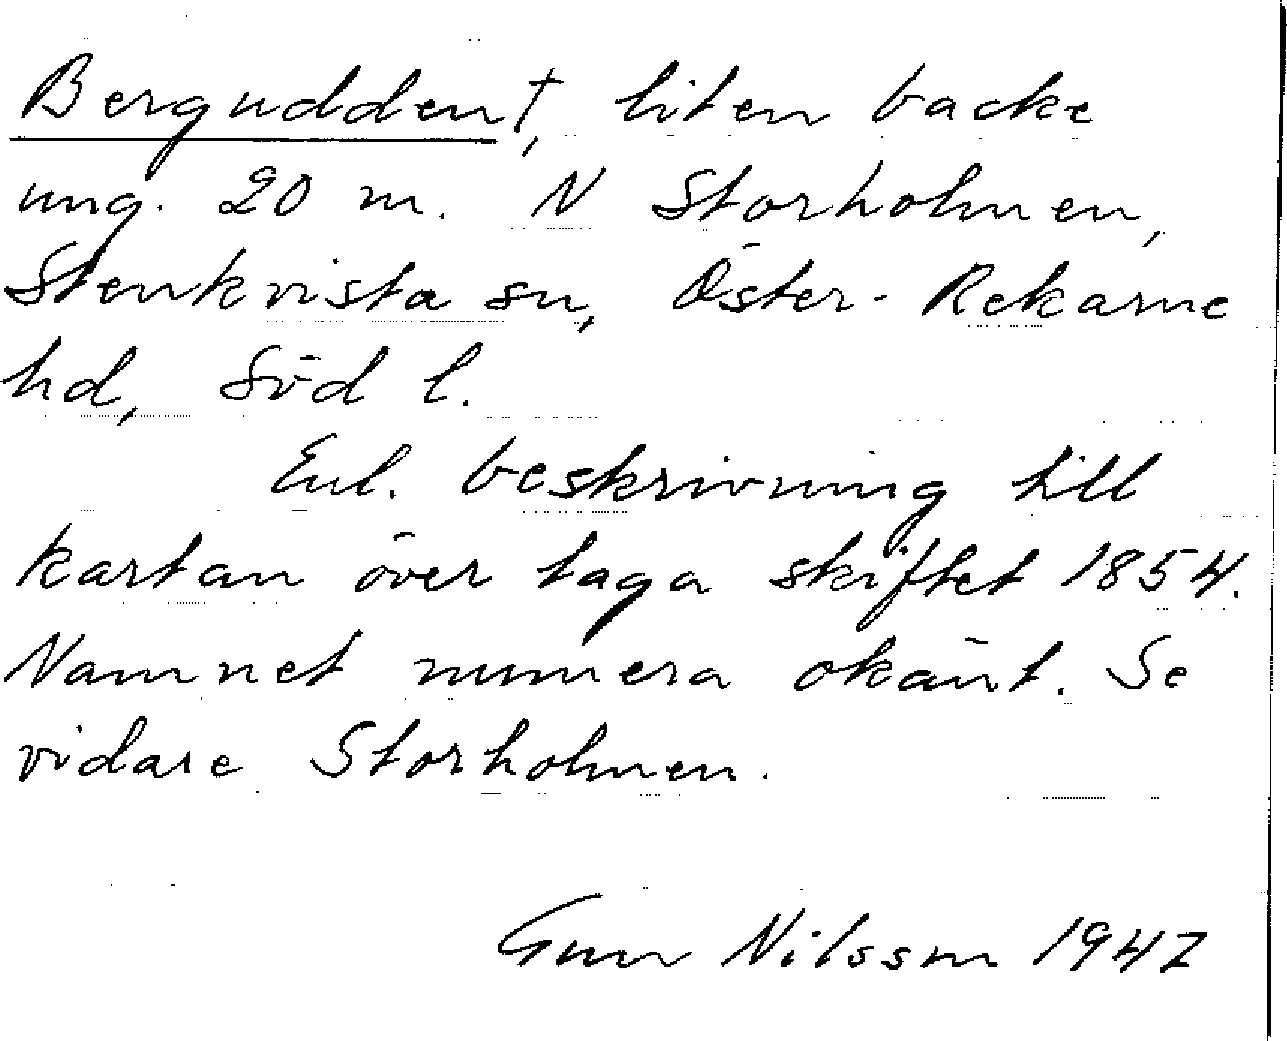 Bergudden†, liten backe
ung. 20 m. N Storholmen,
Stenkvista sn, Öster-Rekarne
hd, Söd l.
Enl. beskrivning till
kartan över laga skiftet 1854.
Namnet numera okänt. Se
vidare Storholmen.
Gun Nilsson 1947